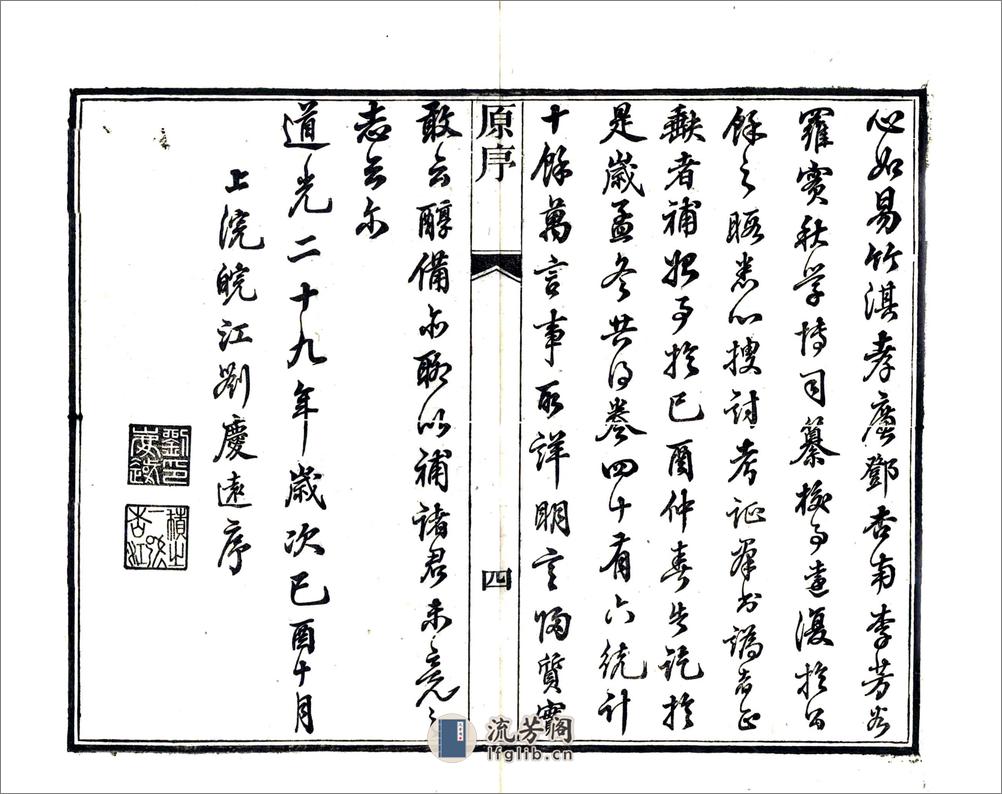 心如易竹淇孝廉鄧杏南李芳谷
羅實秋學博司纂校而遠復於公
餘之暇悉心搜討考證群書譌者正
缺者補始事於己酉仲春告訖於
是歲孟冬共得卷四十有六統計
十餘萬言事取詳明言歸質實
原序
四
敢云醇備亦聊以補諸君未竟之
志云尔
道光二十九年歲次己酉十月
上浣皖江劉慶遠序
流芳閣
lfglib.cn